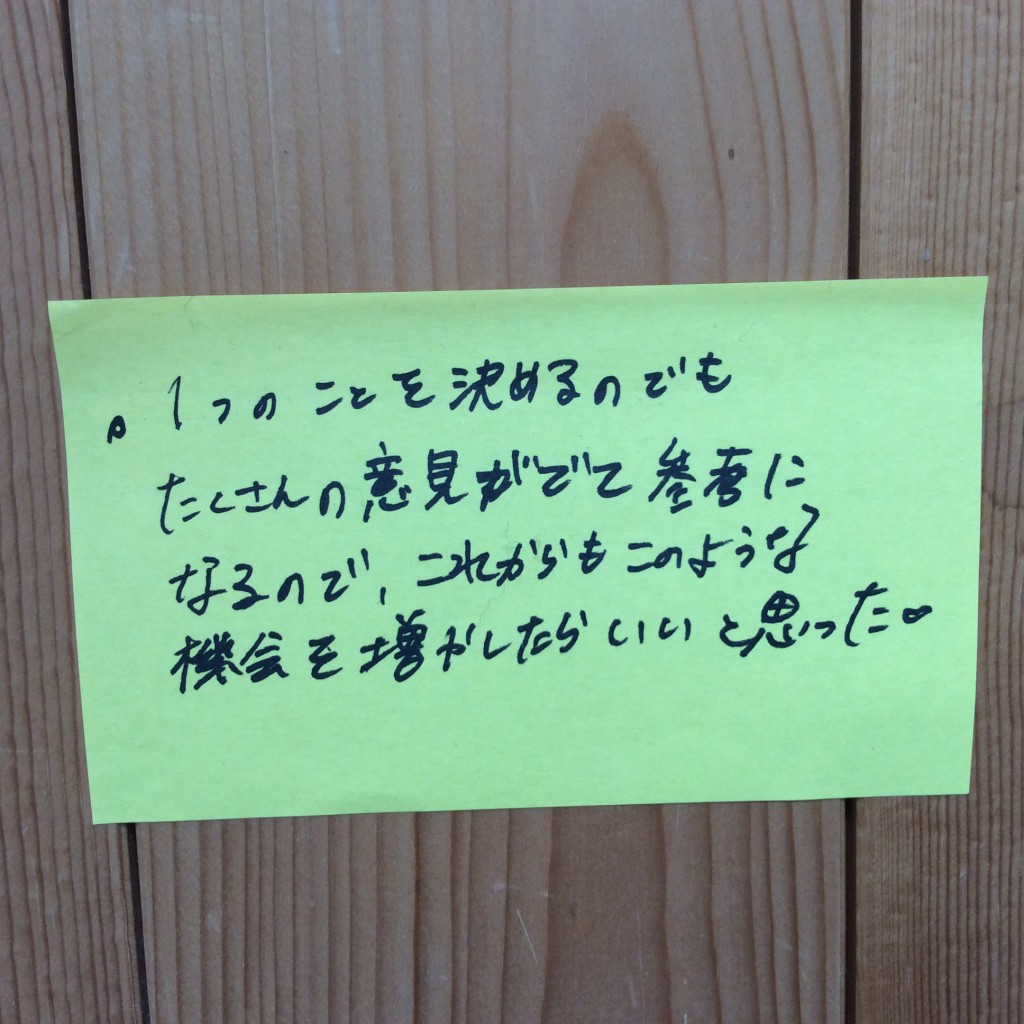 。1つのことを決めるのでも
たくさんの意見がでて参考に
なるので、これからもこのような
機会を増かしたらいいと思った。